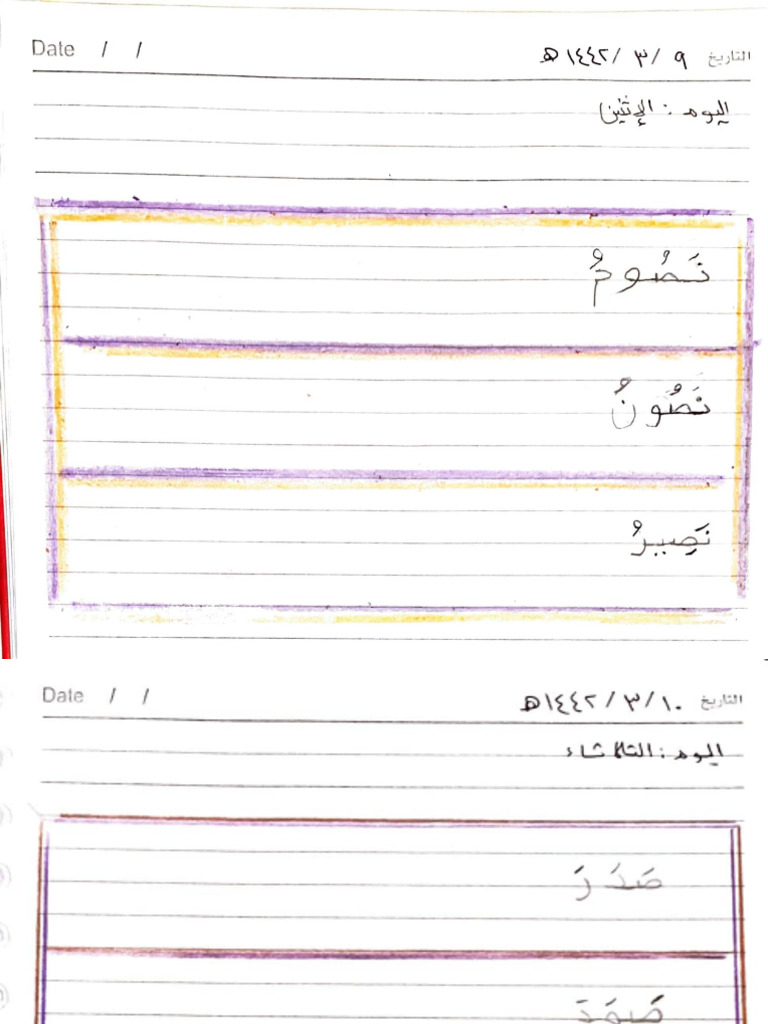 Date / / التاريخ ٩ / ٣ / ١٤٤٢ هـ
اليوم : الإثنين
نَصُومُ
نَصُونُ
نَصِيرُ
Date / / التاريخ ١٠ / ٣ / ١٤٤٢ هـ
اليوم : الثلاثاء
صَدَرَ